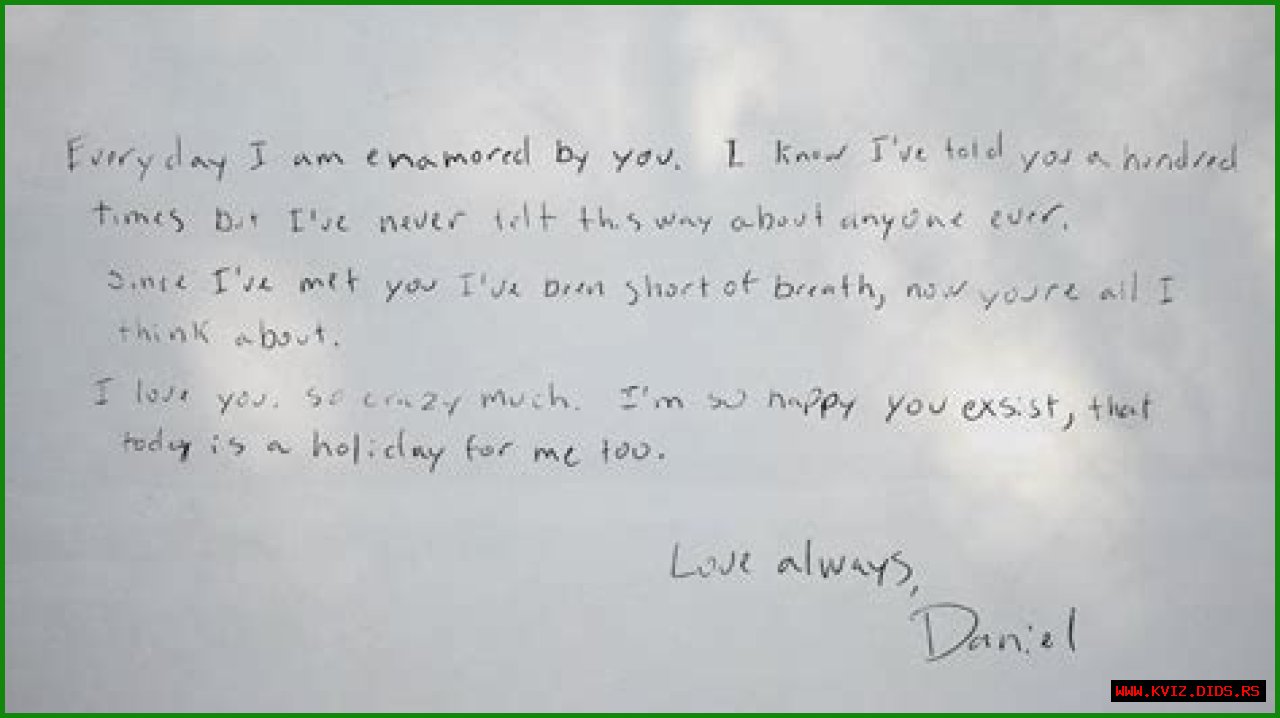 Everyday I am enamored by you. I know I've told you a hundred
times but I've never felt this way about anyone ever.
Since I've met you I've been short of breath, now youre all I
think about.
I love you. so crazy much. I'm so happy you exsist, that
today is a holiday for me too.
Love always,
Daniel
WWW.KVIZ.DIDS.RS